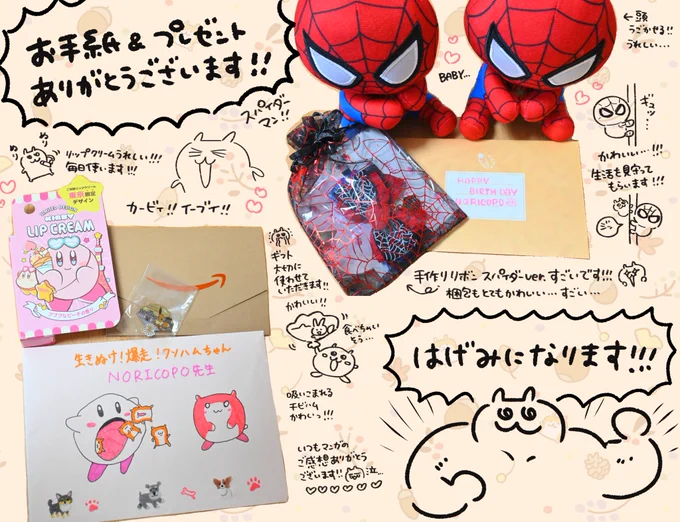 お手紙&プレゼント
ありがとうございます!!
スパイダー
マン!!
BABY...
←頭
うごかせる!!
うれしい...
ギュッ...
かわいい...!!
生活を見守って
もらいます!!!
ぬり
ぬり
リップクリームうれしい!!!
毎日使います!!!
カービィ!! イーブイ!!
HAPPY
BIRTHDAY
NORICOPO
手作りリボン スパイダーver. すごいです!!!
梱包もとてもかわいい...すごい...
東京限定
デザイン
KIRBY
LIP CREAM
ギフト
大切に
使わせて
いただきます!!
かわいい!!
食べちゃい
そう...
吸いこまれる
チビハム
かわいっ!!!
いつもマンガの
ご感想ありがとう
ございます!! 泣...
生きぬけ!爆走!クソハムちゃん
NORICOPO先生
はげみになります!!!